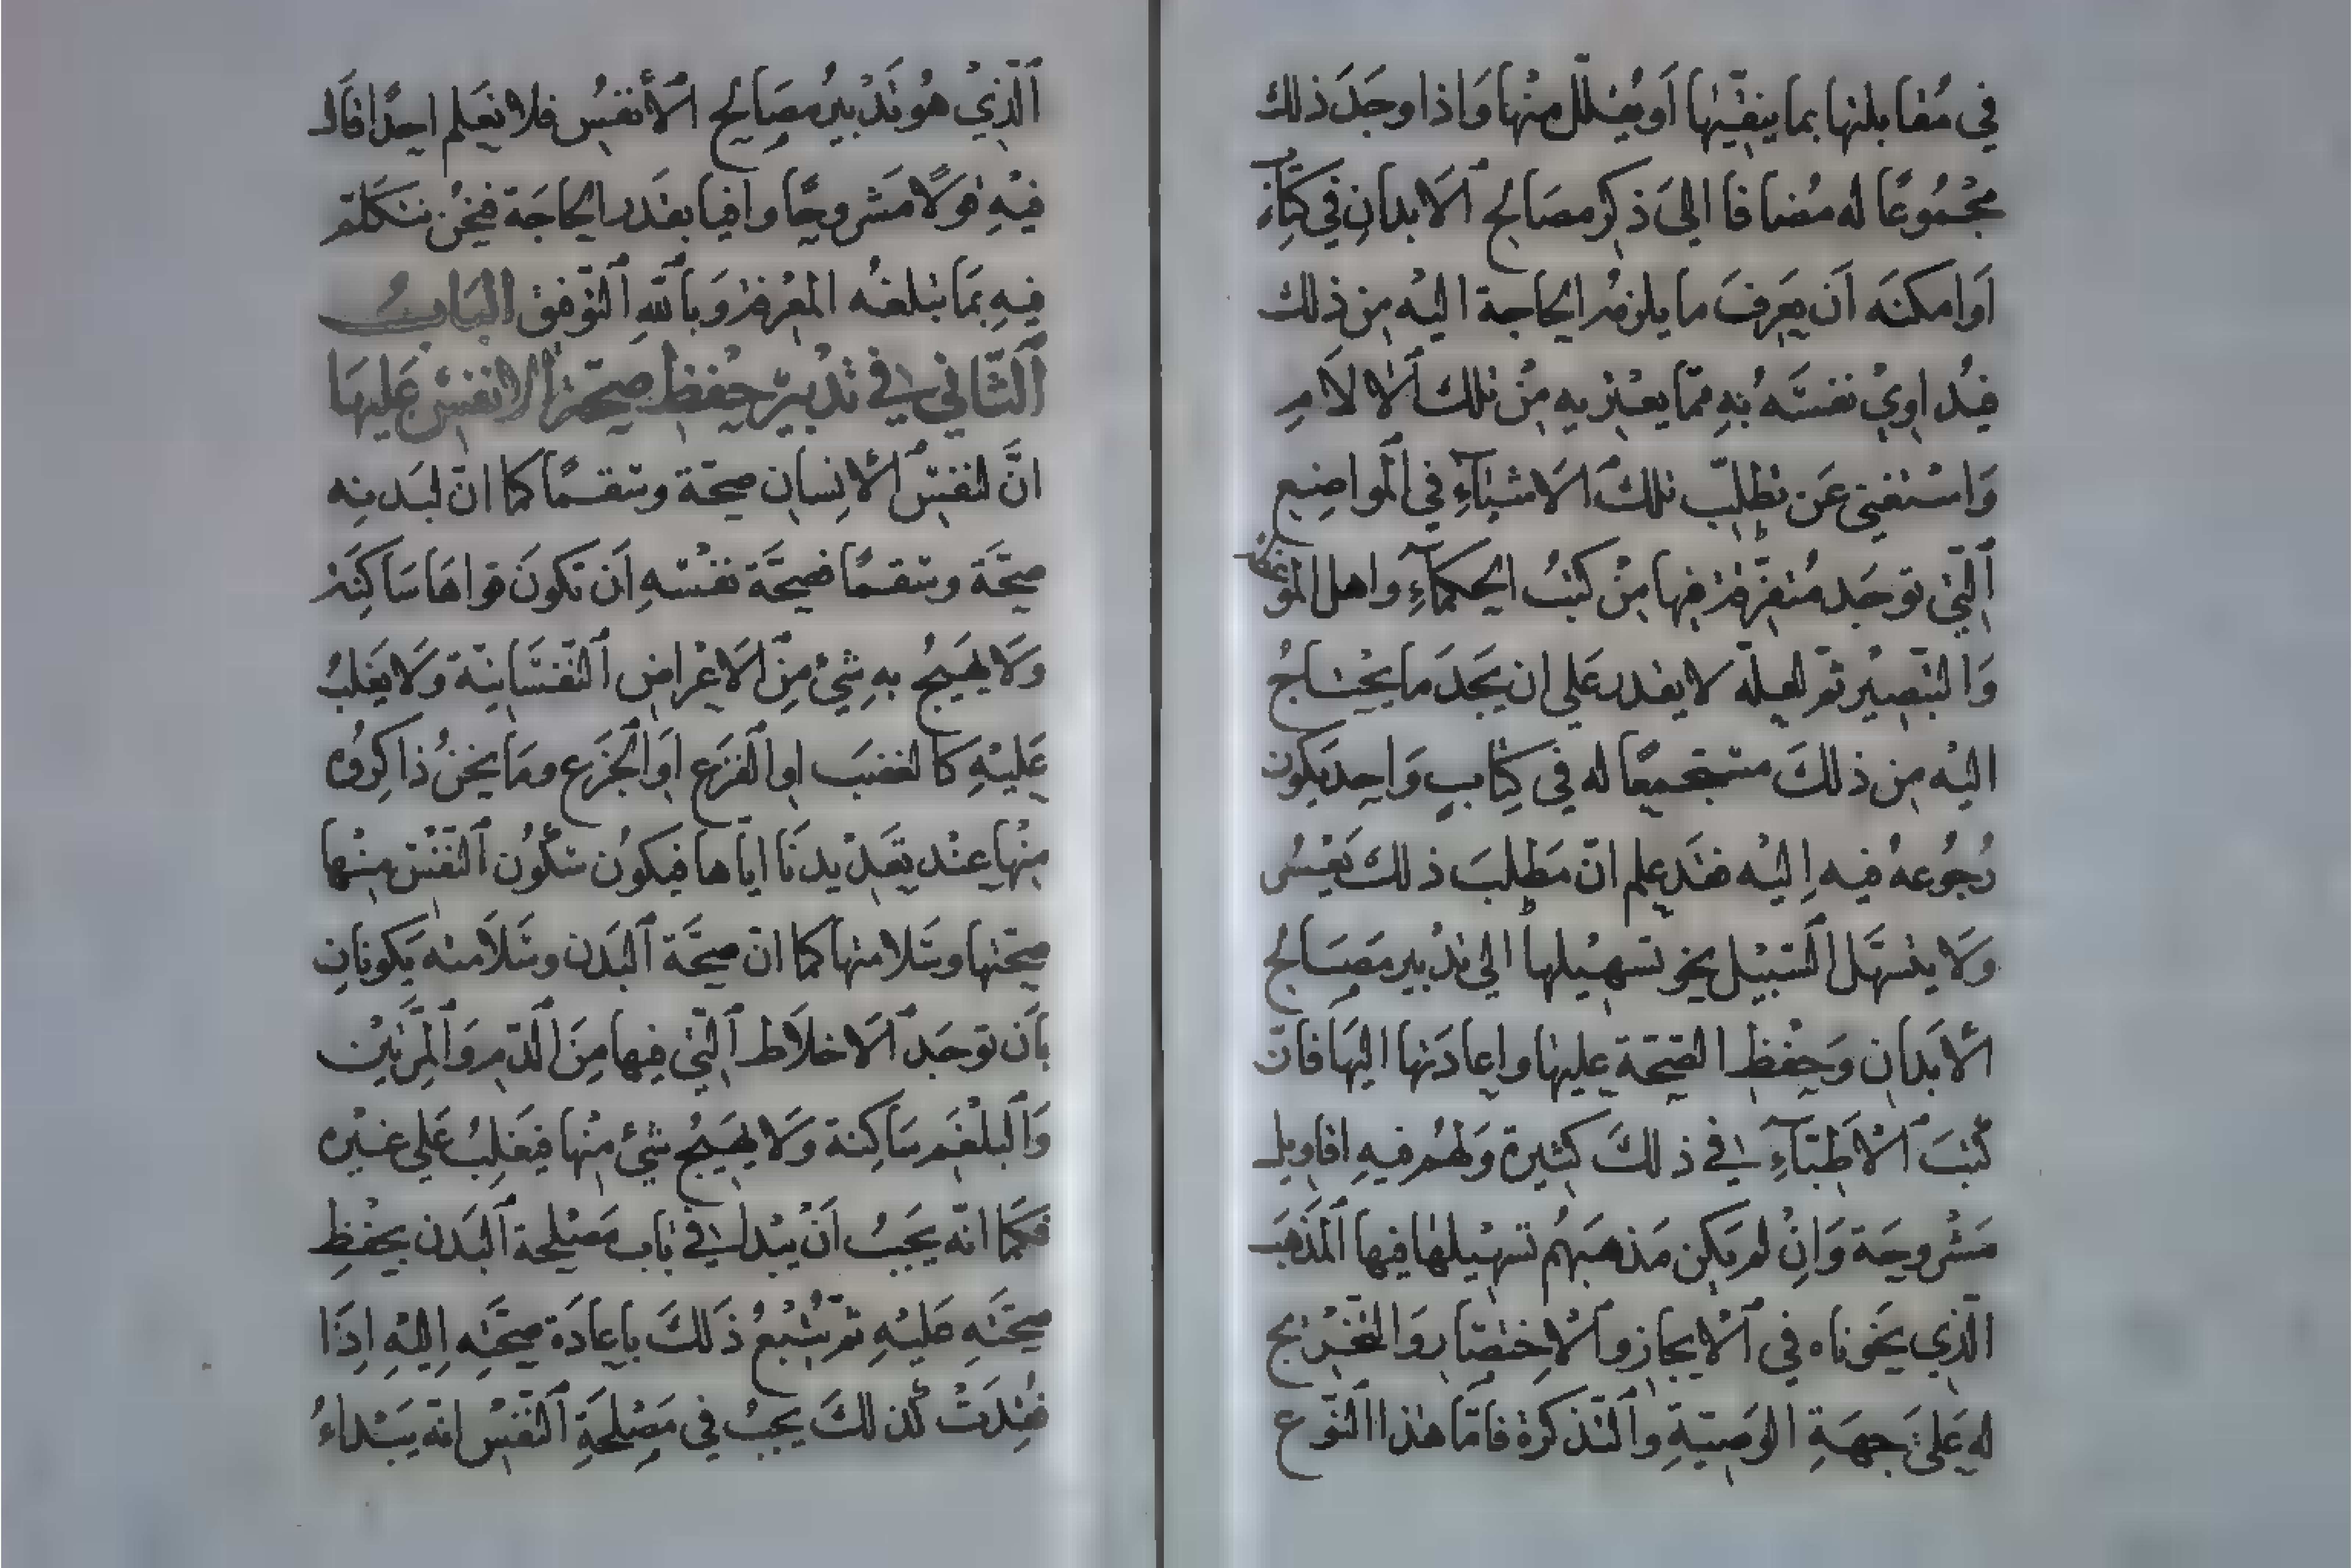 في مُقابلتها بما ينفّيها اَو يُحلّل منْها وَاذا وجَدَ ذلك
مجْمُوعًا له مُضافا الىَ ذكر مصَالح الاَبدانِ في كتابٍ
اَو امكنَه اَن يَعرفَ ما يلزمُه الحاجة اليْه من ذلك
فيُداوِيْ نفسَهُ بهِ ممّا يعْتريه مِنْ تلك الالاَمِ
وَاستغنىَ عَن تطلّب تلكَ الاَشيَآءِ في المواضِع
الّتي توجَد مُتفرّقة فيها مِنْ كتبُ الحكمآءِ واهل الموعظة
وَالتبْصيْر ثمّ لعلّه لا يقدر عَلى ان يَجدَ مَا يحْتاجُ
اليْه مِن ذلكَ مستجمعًا له في كِتابٍ وَاحِد يَكون
رجُوعهُ فيه اِليْه فقَد علم انّ مَطلبَ ذلك يَعْسُر
وَلا يتسَهّل السّبيْل نحو تسهيْلها الى تدْبير مصَالح
الأبدَانِ وَحِفْظِ الصّحّة عليها واِعادَتها اليهَا فانّ
كُتبَ الاْطبّآءِ في ذلكَ كثيرة وَلهُم فيهِ اقاويل
مَشْروحَة وَاِنْ لم يَكن مَذهبهُم تسهيْلها فيها المذهَبَ
الّذي نحَوناه في الاْيجازِ والاْختصَارِ وَالتخْريج
له عَلىَ جهَةِ الوَصيّةِ والتّذكرة فامّا هٰذا النّوع
الّذِيْ هوُ تَدْبيرُ مصَالِح الأنفسُ فلا نعَلم احدًا قالَ
فيْهِ قوَلاً مَشروحًا وافيا بقدَر الحاجَة فنحْن نتكَلّم
فيهِ بمَا تبلغُه المعْرفة وَباللهِ التوّفيق البَابُ
الثّاني في تدْبيْر حِفظ صحّة الانفس عَليهَا
انَّ لنفس الاْنسان صحّة وسقـمًا كما انّ لبَدنه
صحَّة وسقـمًا فصحَّة نفسْهِ اَن تكونَ قواهَا سَاكنَة
وَلاَ يَهيَجُ بهِ شيْءٌ مِنَ الاَعْراضِ النّفسَانيّة وَلا يَغلبُ
عَليْهِ كالغضَب اوِ الفَزَع اَوِ الجَزَع ومَا نحنُ ذاكروُه
مِنْها عِنْد تعَدْيدنَا ايّاها فيكونُ سُكُون النّفْس مِنْها
صحّتها وسَلامتها كما انّ صحَّة البَدن وسَلاَمته يَكونانِ
بأن توجَد الاَخلاَط الّتي فيها مِنَ الدّمِ وَالمِرَّتيْن
وَالبلغَم سَاكنة وَلاَ يهيَجُ شيْءٌ مِنْها فيَغلِبُ عَلى غيْره
فكمَا انّه يَجبُ اَنْ يبْدأ في بَابِ مصْلحة البَدن بحفْظِ
صحّتهِ عَليْهِ ثمّ يُتْبعُ ذَلكَ باِعادَة صحَّتِه اِليْهِ اِذَا
فُقِدَتْ كَذلكَ يجبُ في مَصْلحَةِ النّفسْ انّه يَبْدَاءُ